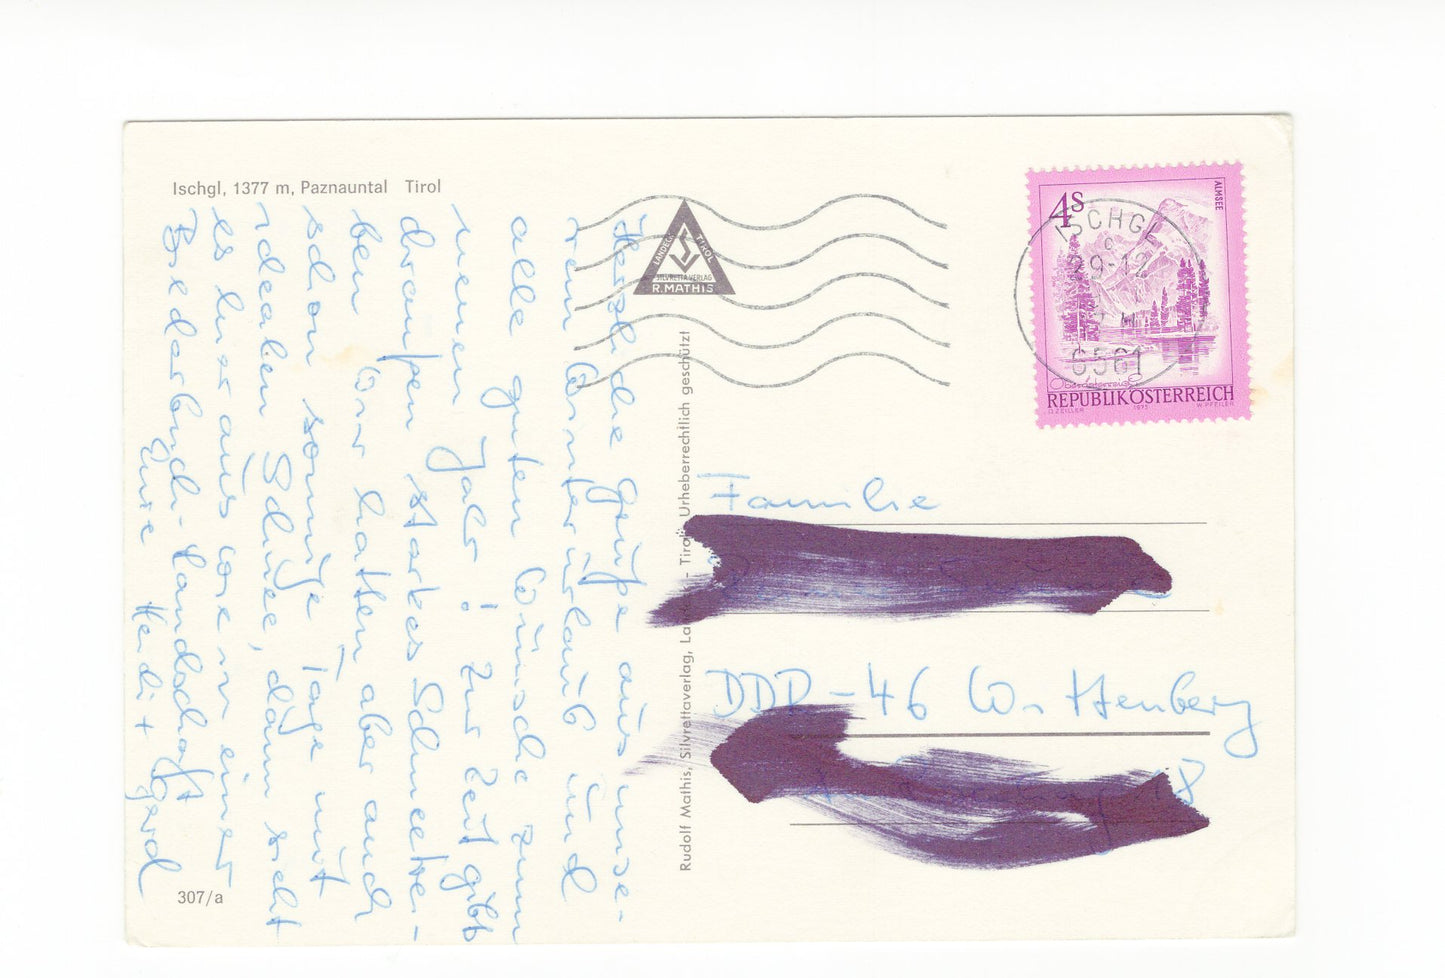 Ischgl, 1377 m, Paznauntal Tirol
Herzliche Grüße aus unse-
rem Winterurlaub und
alle guten Wünsche zum
neuen Jahr! Zur Zeit gibt
es draußen starkes Schneetrei-
ben. Wir hatten aber auch
schon sonnige Tage mit
idealen Schnee, dann sieht
es hier aus wie in einer
Bilderbuch-Landschaft
Eure Herdit Gerd
307/a
LANDECK TIROL
SILVRETTAVERLAG
R. MATHIS
Rudolf Mathis, Silvrettaverlag, Landeck - Tirol. Urheberrechtlich geschützt
4S
ALMSEE
Oberösterreich
REPUBLIK ÖSTERREICH
O. ZEILER 1973 W. PFEILER
ISCHGL
29-12
6561
Familie
DDR-46 Wittenberg